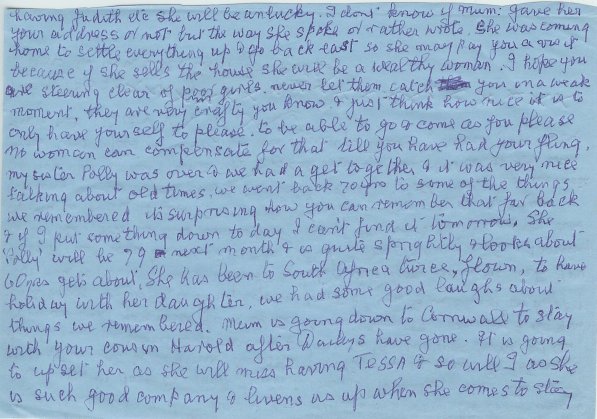 having Judith etc she will be unlucky. I dont know if mum gave her
your address or not but the way she spoke or rather wrote. She was coming
home to settle everything up & go back east so she may pay you a visit
because if she sells the house she will be a wealthy woman. I hope you
are steering clear of girls, never let them catch you in a weak
moment, they are very crafty you know & just think how nice it is to
only have yourself to please, to be able to go & come as you please
no woman can compensate for that till you have had your fling,
my sister Polly was over & we had a get together & it was very nice
talking about old times, we went back 70yrs to some of the things
we remembered its surprising how you can remember that far back
& if I put something down to day I can't find it tomorrow. She
Polly will be 79 next month & is quite sprightly & looks about
60 gets about. She has been to South Africa twice, flown, to have
holiday with her daughter, we had some good laughs about
things we remembered. Mum is going down to Cornwall to stay
with your cousin Harold after have gone. It is going
to upset her as she will miss having Tessa & so will I as she
is such good company & livens us up when she comes to stay